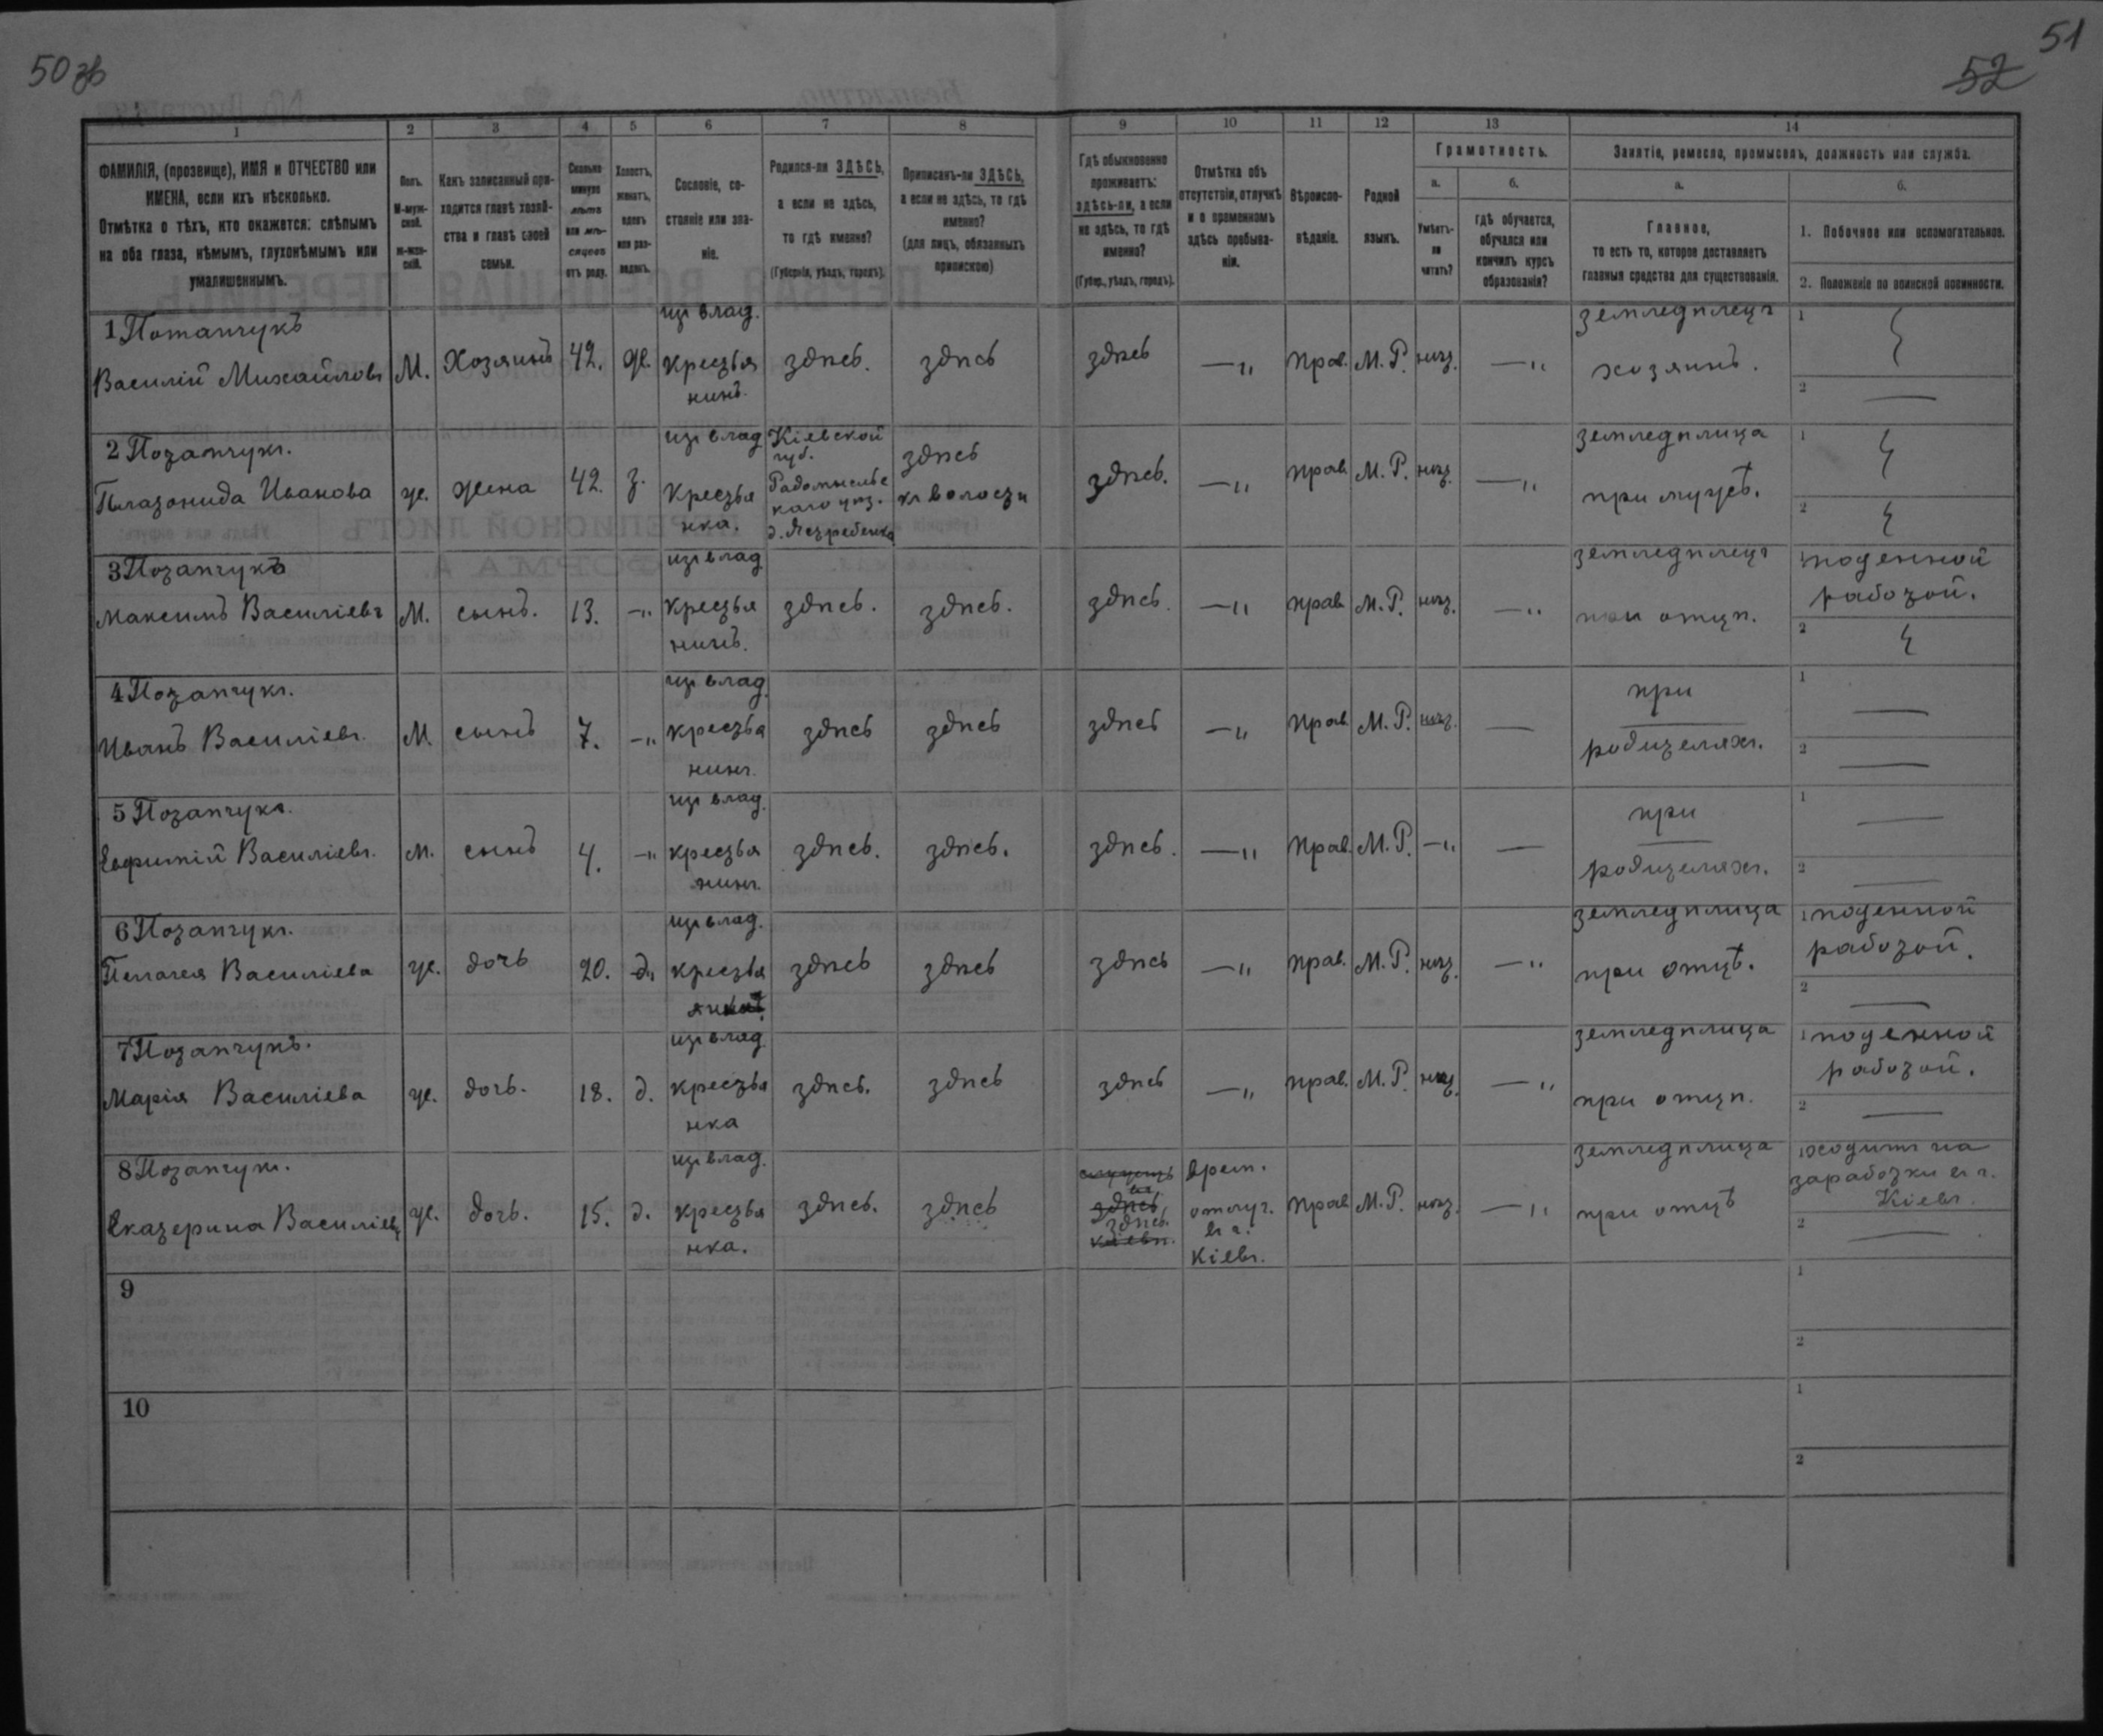 50 зв
51
52
1
2
3
4
5
6
7
8
9
10
11
12
13
14
ФАМИЛІЯ, (прозвище), ИМЯ и ОТЧЕСТВО или
ИМЕНА, если ихъ нѣсколько.
Отмѣтка о тѣхъ, кто окажется: слѣпымъ
на оба глаза, нѣмымъ, глухонѣмымъ или
умалишеннымъ.
Полъ.
М-муж-
ской.
ж-жен-
скій.
Какъ записанный при-
ходится главѣ хозяй-
ства и главѣ своей
семьи.
Сколько
минуло
лѣтъ
или мѣ-
сяцевъ
отъ роду.
Холостъ,
женатъ,
вдовъ
или раз-
веденъ.
Сословіе, со-
стояніе или зва-
ніе.
Родился-ли ЗДѢСЬ,
а если не здѣсь,
то гдѣ именно?
(Губернія, уѣздъ, городъ).
Приписанъ-ли ЗДѢСЬ,
а если не здѣсь, то гдѣ
именно?
(для лицъ, обязанныхъ
припискою)
Гдѣ обыкновенно
проживаетъ:
здѣсь-ли, а если
не здѣсь, то гдѣ
именно?
(Губер., уѣздъ, городъ).
Отмѣтка объ
отсутствіи, отлучкѣ
и о временномъ
здѣсь пребыва-
ніи.
Вѣроиспо-
вѣданіе.
Родной
языкъ.
Грамотность.
а.
Умѣетъ-
ли
читать?
б.
гдѣ обучается,
обучался или
кончилъ курсъ
образованія?
Занятіе, ремесло, промыселъ, должность или служба.
а.
Главное,
то есть то, которое доставляетъ
главныя средства для существованія.
б.
1. Побочное или вспомогательное.
2. Положеніе по воинской повинности.
1 Потапчукъ
Василій Михайловъ
М.
Хозяинъ
42.
ж.
из влад.
Крестья
нинъ.
здѣсь.
здѣсь
здѣсь
—„
прав.
М. Р.
нѣт.
—„
земледѣлецъ
хозяинъ.
1
2
2 Потапчукъ.
Ивanова
ж.
жена
42.
з.
из влад
Крестья
нка.
Кіевской
губ.
Радомысльс
каго уѣз.
д. Ястребенка
здѣсь
къ волости
здѣсь.
—„
прав.
М. Р.
нѣт.
—„
земледѣлица
при мужѣ.
1
2
3 Потапчукъ
Максимъ Василіевъ
М.
сынъ.
13.
—„
из влад
крестья
нинъ.
здѣсь.
здѣсь.
здѣсь.
—„
прав.
М. Р.
нѣт.
—„
земледѣлецъ
при отцѣ.
1 поденной
работой.
2
4 Потапчукъ.
Иванъ Василіевъ.
М.
сынъ
7.
—„
из влад.
крестья
нинъ.
здѣсь
здѣсь
здѣсь
—„
прав.
М. Р.
нѣт.
—
при
родителяхъ.
1
2
5 Потапчукъ.
Евфимій Василіевъ.
М.
сынъ
4.
—„
из влад.
крестья
нинъ.
здѣсь.
здѣсь.
здѣсь.
—„
прав.
М. Р.
—„
—
при
родителяхъ.
1
2
6 Потапчукъ.
Пелагея Василіева
ж.
дочь
20.
д.
из влад.
крестья
янка
здѣсь
здѣсь
здѣсь
—„
прав.
М. Р.
нѣт.
—„
земледѣлица
при отцѣ.
1 поденной
работой.
2
7 Потапчукъ.
Марія Василіева
ж.
дочь.
18.
д.
из влад.
крестья
нка
здѣсь.
здѣсь
здѣсь
—„
прав.
М. Р.
нѣт.
—„
земледѣлица
при отцѣ.
1 поденной
работой.
2
8 Потапчукъ.
Екатерина Василіев
ж.
дочь.
15.
д.
из влад.
крестья
нка.
здѣсь.
здѣсь
здѣсь
здѣсь.
Кіевѣ.
врем.
отлуч.
въ г.
Кіевъ.
прав.
М. Р.
нѣт.
—„
земледѣлица
при отцѣ
1 ходитъ на
заработки въ г.
Кіевъ.
2
9
1
2
10
1
2